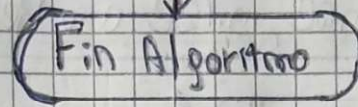 Fin Algoritmo